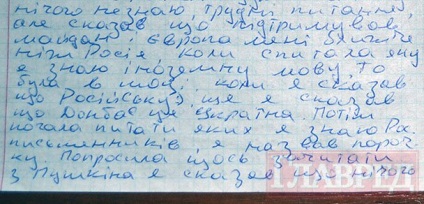 нічого не знаю, трудні питання,
але сказав що підтримував
майдан і Європа мені ближче
ніж Росія коли спитала яку
я знаю іноземну мову то
була в шоці коли я сказав
що Російську, ще я сказав
що Донбас це Україна. Потім
почала питати яких я знаю Рос.
письменників я назвав пароч
ку. Попросила щось зачитати
з Пушкіна я сказав що нічого
ГЛАВРЕД